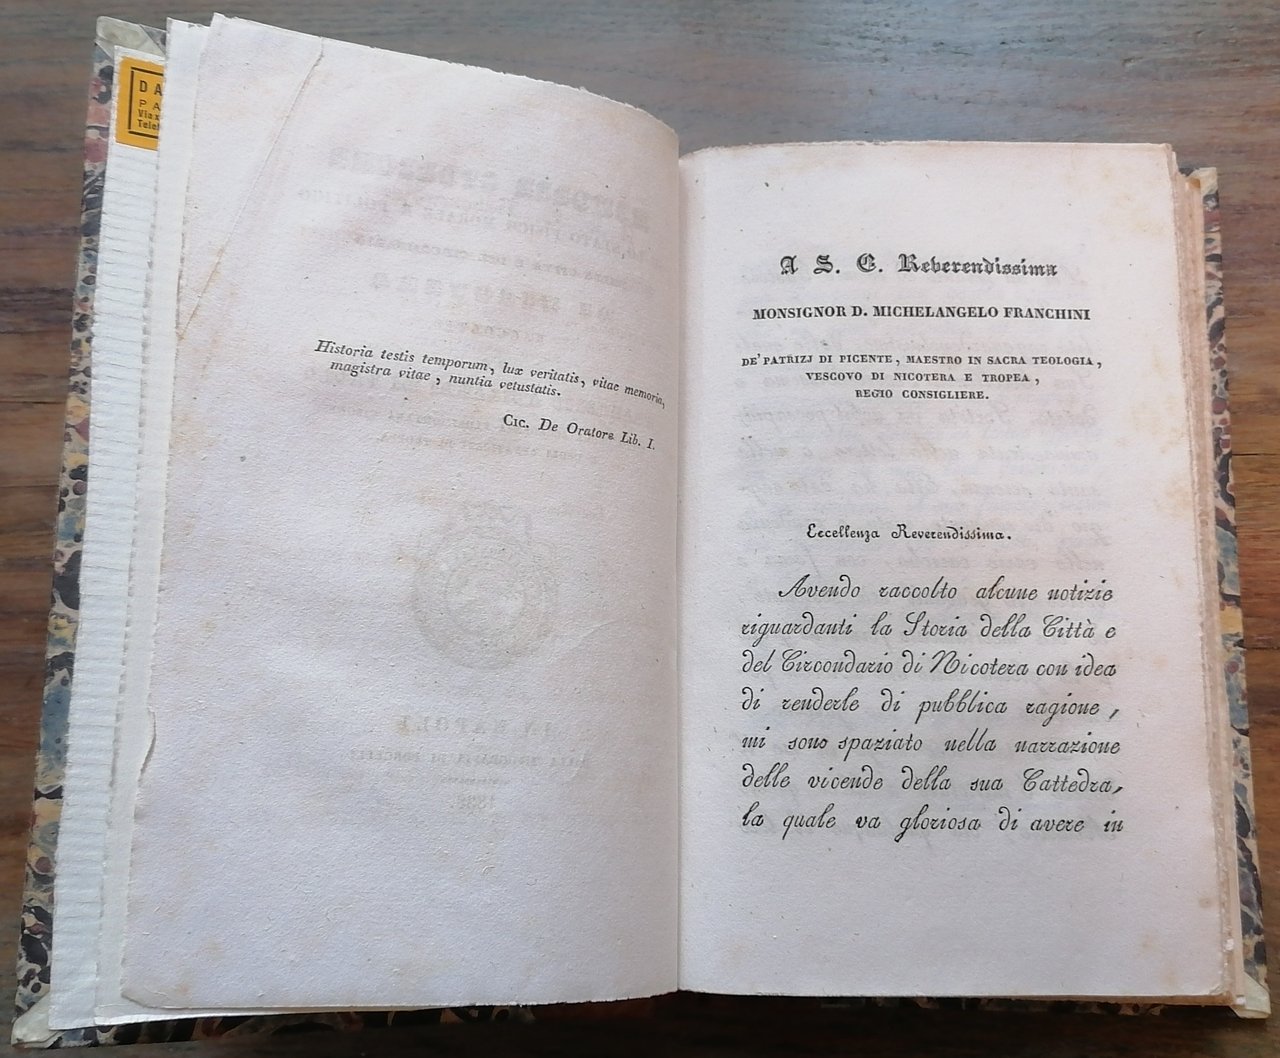 DA
PA
Via x
Telef
Historia testis temporum, lux veritatis, vitae memoria,
magistra vitae, nuntia vetustatis.
Cic. De Oratore Lib. I.
A S. E. Reverendissima
MONSIGNOR D. MICHELANGELO FRANCHINI
DE' PATRIZJ DI PICENTE, MAESTRO IN SACRA TEOLOGIA,
VESCOVO DI NICOTERA E TROPEA,
REGIO CONSIGLIERE.
Eccellenza Reverendissima.
Avendo raccolto alcune notizie
riguardanti la Storia della Città e
del Circondario di Nicotera con idea
di renderle di pubblica ragione,
mi sono spaziato nella narrazione
delle vicende della sua Cattedra,
la quale va gloriosa di avere in